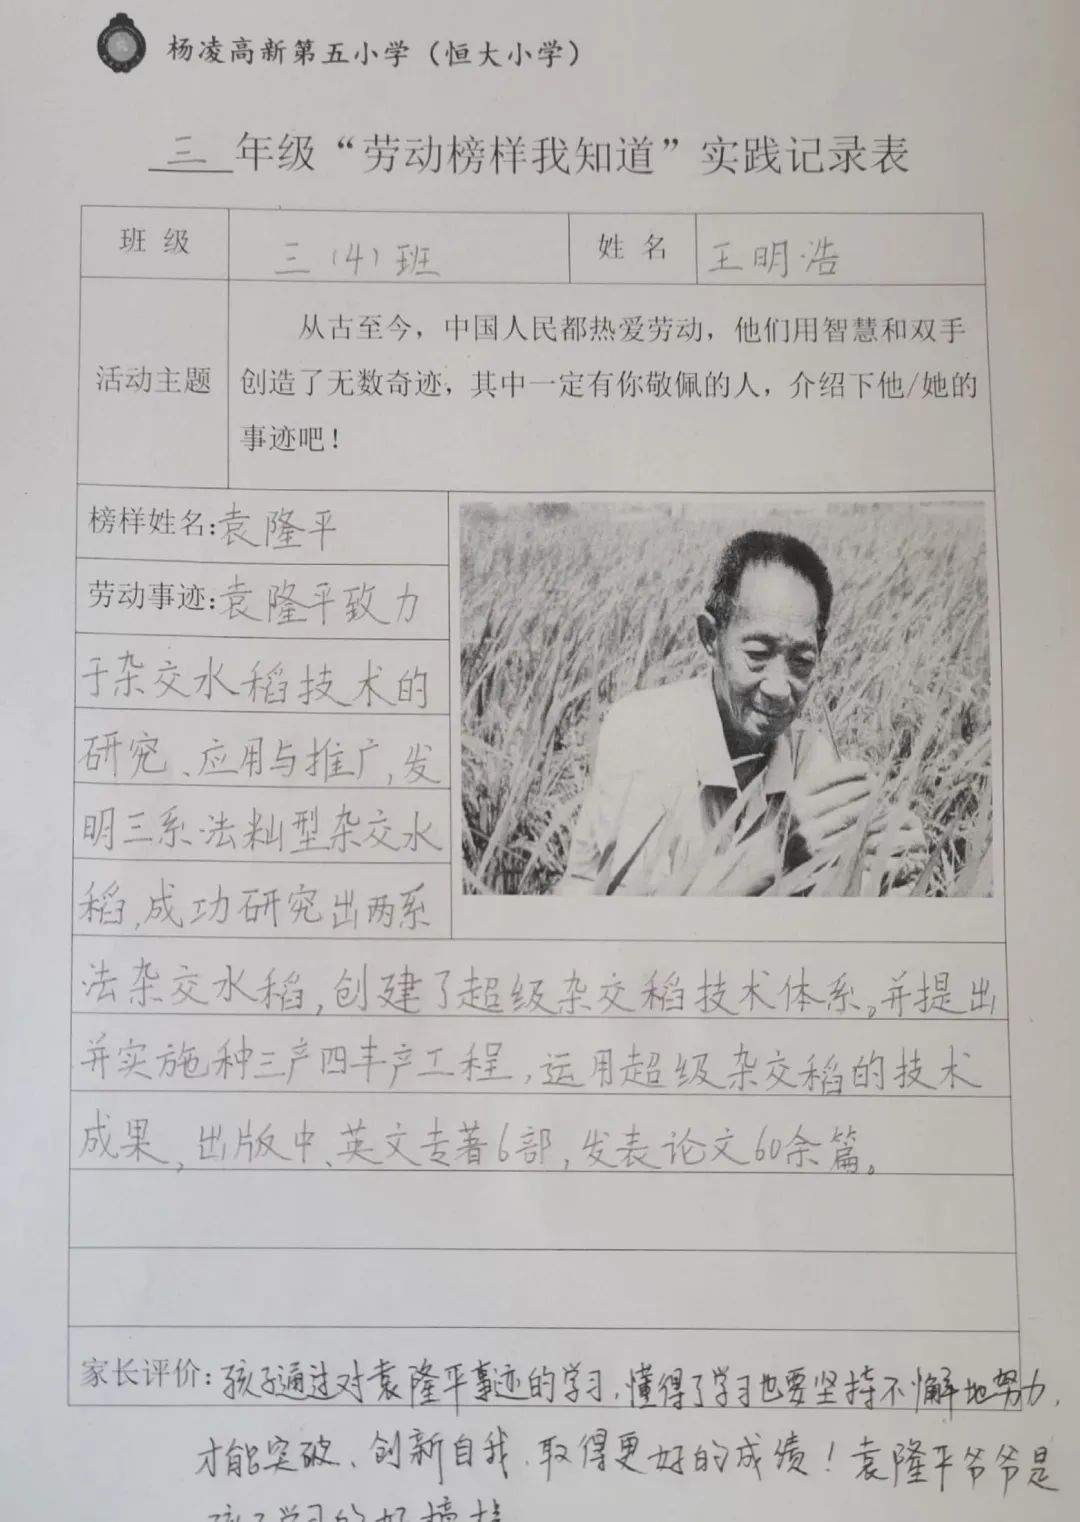 杨凌高新第五小学（恒大小学）
三年级“劳动榜样我知道”实践记录表
班级 三（4）班 姓名 王明浩
活动主题
从古至今，中国人民都热爱劳动，他们用智慧和双手
创造了无数奇迹，其中一定有你敬佩的人，介绍下他/她的
事迹吧！
榜样姓名：袁隆平
劳动事迹：袁隆平致力
于杂交水稻技术的
研究、应用与推广，发
明三系法籼型杂交水
稻，成功研究出两系
法杂交水稻，创建了超级杂交稻技术体系。并提出
并实施种三产四丰产工程，运用超级杂交稻的技术
成果，出版中、英文专著6部，发表论文60余篇。
家长评价：孩子通过对袁隆平事迹的学习，懂得了学习也要坚持不懈地努力，
才能突破、创新自我，取得更好的成绩！袁隆平爷爷是
孩子学习的好榜样